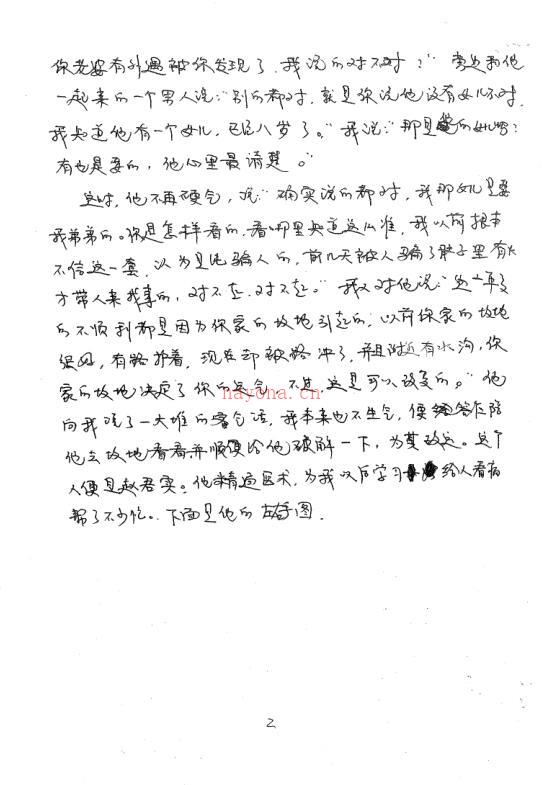 你老婆有外遇被你发现了，我说的对不对？”旁边和他
一起来的一个男人说：“别的都对，就是你说他没有女儿不对，
我知道他有一个女儿，已经八岁了。”我说：“那是他的女儿吗？
有也是要的，他心里最清楚。”
这时，他不再硬气，说：“确实说的都对，我那女儿是要
我弟弟的。你是怎样看的，看哪里知道这么准，我以前根本
不信这一套，认为是骗人的，前几天被人骗了肚子里有火
才带人来找事的，对不起，对不起。”我又对他说：“这十年多
的不顺利都是因为你家的坟地引起的，以前你家的坟地
很好，有路护着，现在却被路冲了，并且附近有水沟，你
家的坟地决定了你的运气，不过，这是可以改变的。”他
向我说了一大堆的客气话，我本来也不生气，便答应陪
他去坟地看看并顺便给他破解一下，为其改运。这个
人便是赵君实。他精通医术，为我以后学习给人看病
帮了不少忙。下面是他的左手图.
nayona.cn
2